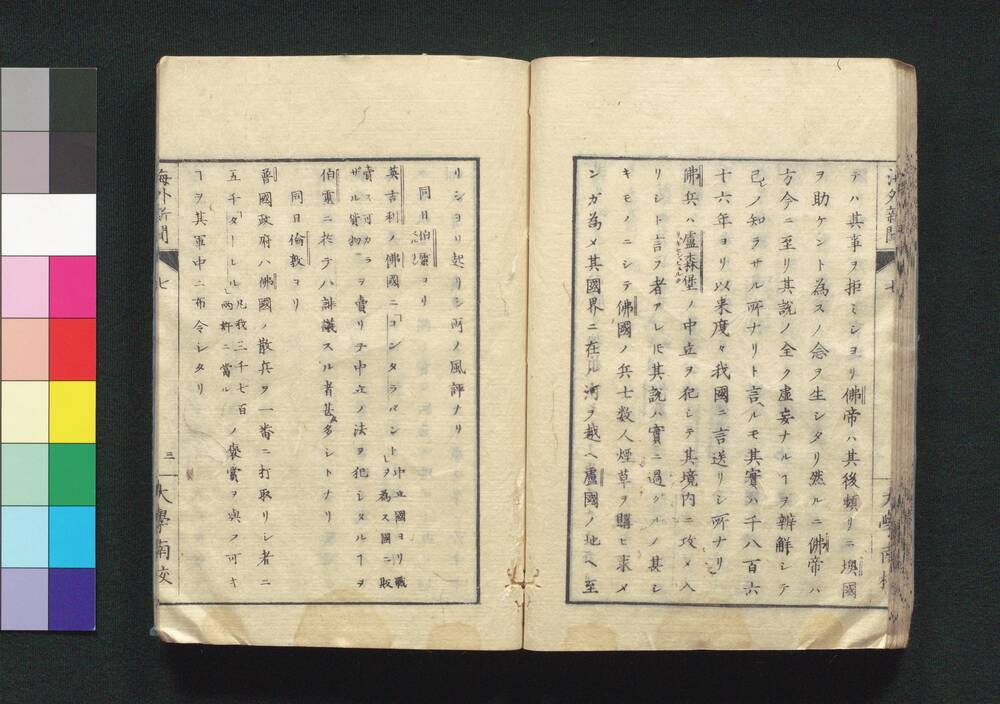 テハ其事ヲ拒ミシヨリ佛帝ハ其後頻リニ墺國
ヲ助ケント為スノ念ヲ生シタリ然ルニ佛帝ハ
方今ニ至リ其説ノ全ク虚妄ナルヿヲ辨解シテ
己レノ知ラサル所ナリト言ヘルモ其實ハ千八百六
十六年ヨリ以来度々我國ニ言送リシ所ナリ
佛兵ハ盧森堡ノ中立ヲ犯シテ其境内ニ攻メ入
リシト言フ者アレ𪜈其説ハ實ニ過グルノ甚シ
キモノニシテ佛國ノ兵士数人煙草ヲ購ヒ求メ
ンガ為メ其國界ニ在ル河ヲ越ヘ盧國ノ地ヘ至
リシヨリ起リシ所ノ風評ナリ
同日伯靈ヨリ
英吉利ノ佛國ニ「コンタラバント」中立國ヨリ戰ヲ為ス國ニ販賣ス可カラザル貨物ヲ賣リテ中立ノ法ヲ犯シタルヿヲ
伯靈ニ於テハ誹議スル者甚多シトナリ
同日倫敦ヨリ
普國政府ハ佛國ノ散兵ヲ一番ニ打取リシ者ニ
五千「ターレル」凡我三千七百両許ニ當ルノ褒賞ヲ與フ可キ
ヿヲ其軍中ニ布令シタリ
海外新聞
七
三
大學南校